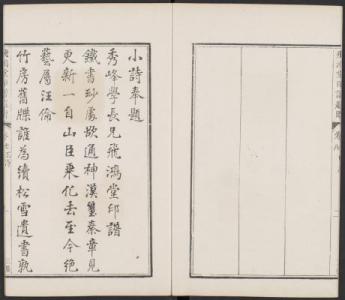 小詩奉題
秀峰學長兄飛鴻堂印譜
鐵書玅處欲通神漢篆秦章見
更新一自山臣乘化去至今絕
藝屬汪倫
竹房舊牒誰為續松雪遺書孰